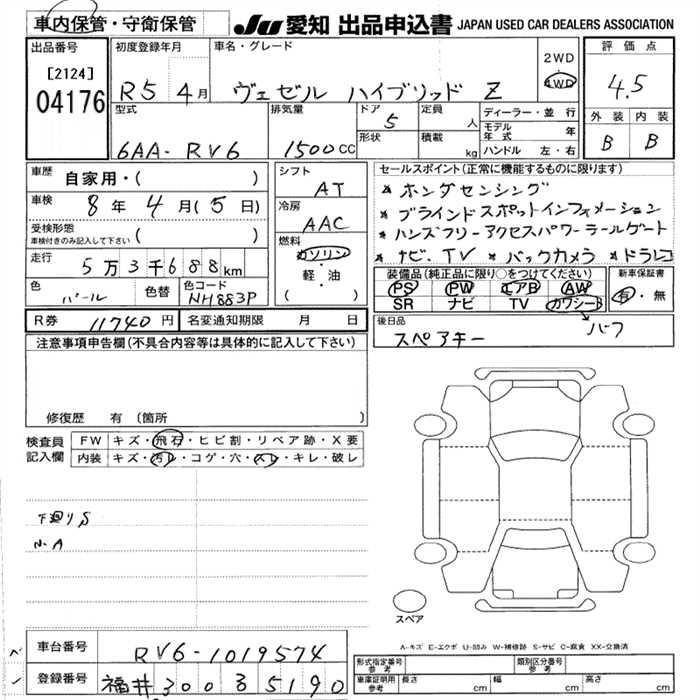 車内保管・守衛保管
JU 愛知 出品申込書 JAPAN USED CAR DEALERS ASSOCIATION
出品番号
[2124]
04176
初度登録年月
R5 4月
車名・グレード
ヴェゼル ハイブリッド Z
2WD
4WD
評価点
4.5
外装 内装
B B
型式
6AA-RV6
排気量
1500cc
ドア
5
形状
定員
人
積載
kg
ディーラー・並行
モデル年式 年
ハンドル 左・右
車歴
自家用・( )
車検
8年 4月(5日)
受検形態
車検付きのみ記入して下さい ( )
走行
5万3千688km
色
パール
色替
色コード
NH883P
シフト
AT
冷房
AAC
燃料
ガソリン
・軽・油
( )
セールスポイント(正常に機能するものに限ります)
* ホンダセンシング
* ブラインドスポットインフォメーション
* ハンズフリーアクセスパワーテールゲート
* ナビ.TV * バックカメラ * ドラレコ
装備品(純正品に限り○をつけてください)
PS PW エアB AW
SR ナビ TV カワシート
ハーフ
新車保証書
有・無
R券 11740円 名変通知期限 月 日
後日品
スペアキー
注意事項申告欄(不具合内容等は具体的に記入して下さい)
修復歴 有(箇所 )
検査員記入欄
FW キズ・飛石・ヒビ割・リペア跡・X要
内装 キズ・汚レ・コゲ・穴・スレ・キレ・破レ
下廻りS
N.A
スペア
A-キズ E-エクボ U-凹み W-補修跡 S-サビ C-腐食 XX-交換済
車台番号 RV6-1019574
登録番号 福井 300 8 5190
形式指定番号 参考
類別区分番号 参考
車庫証明用 参考 長さ cm 幅 cm 高さ cm